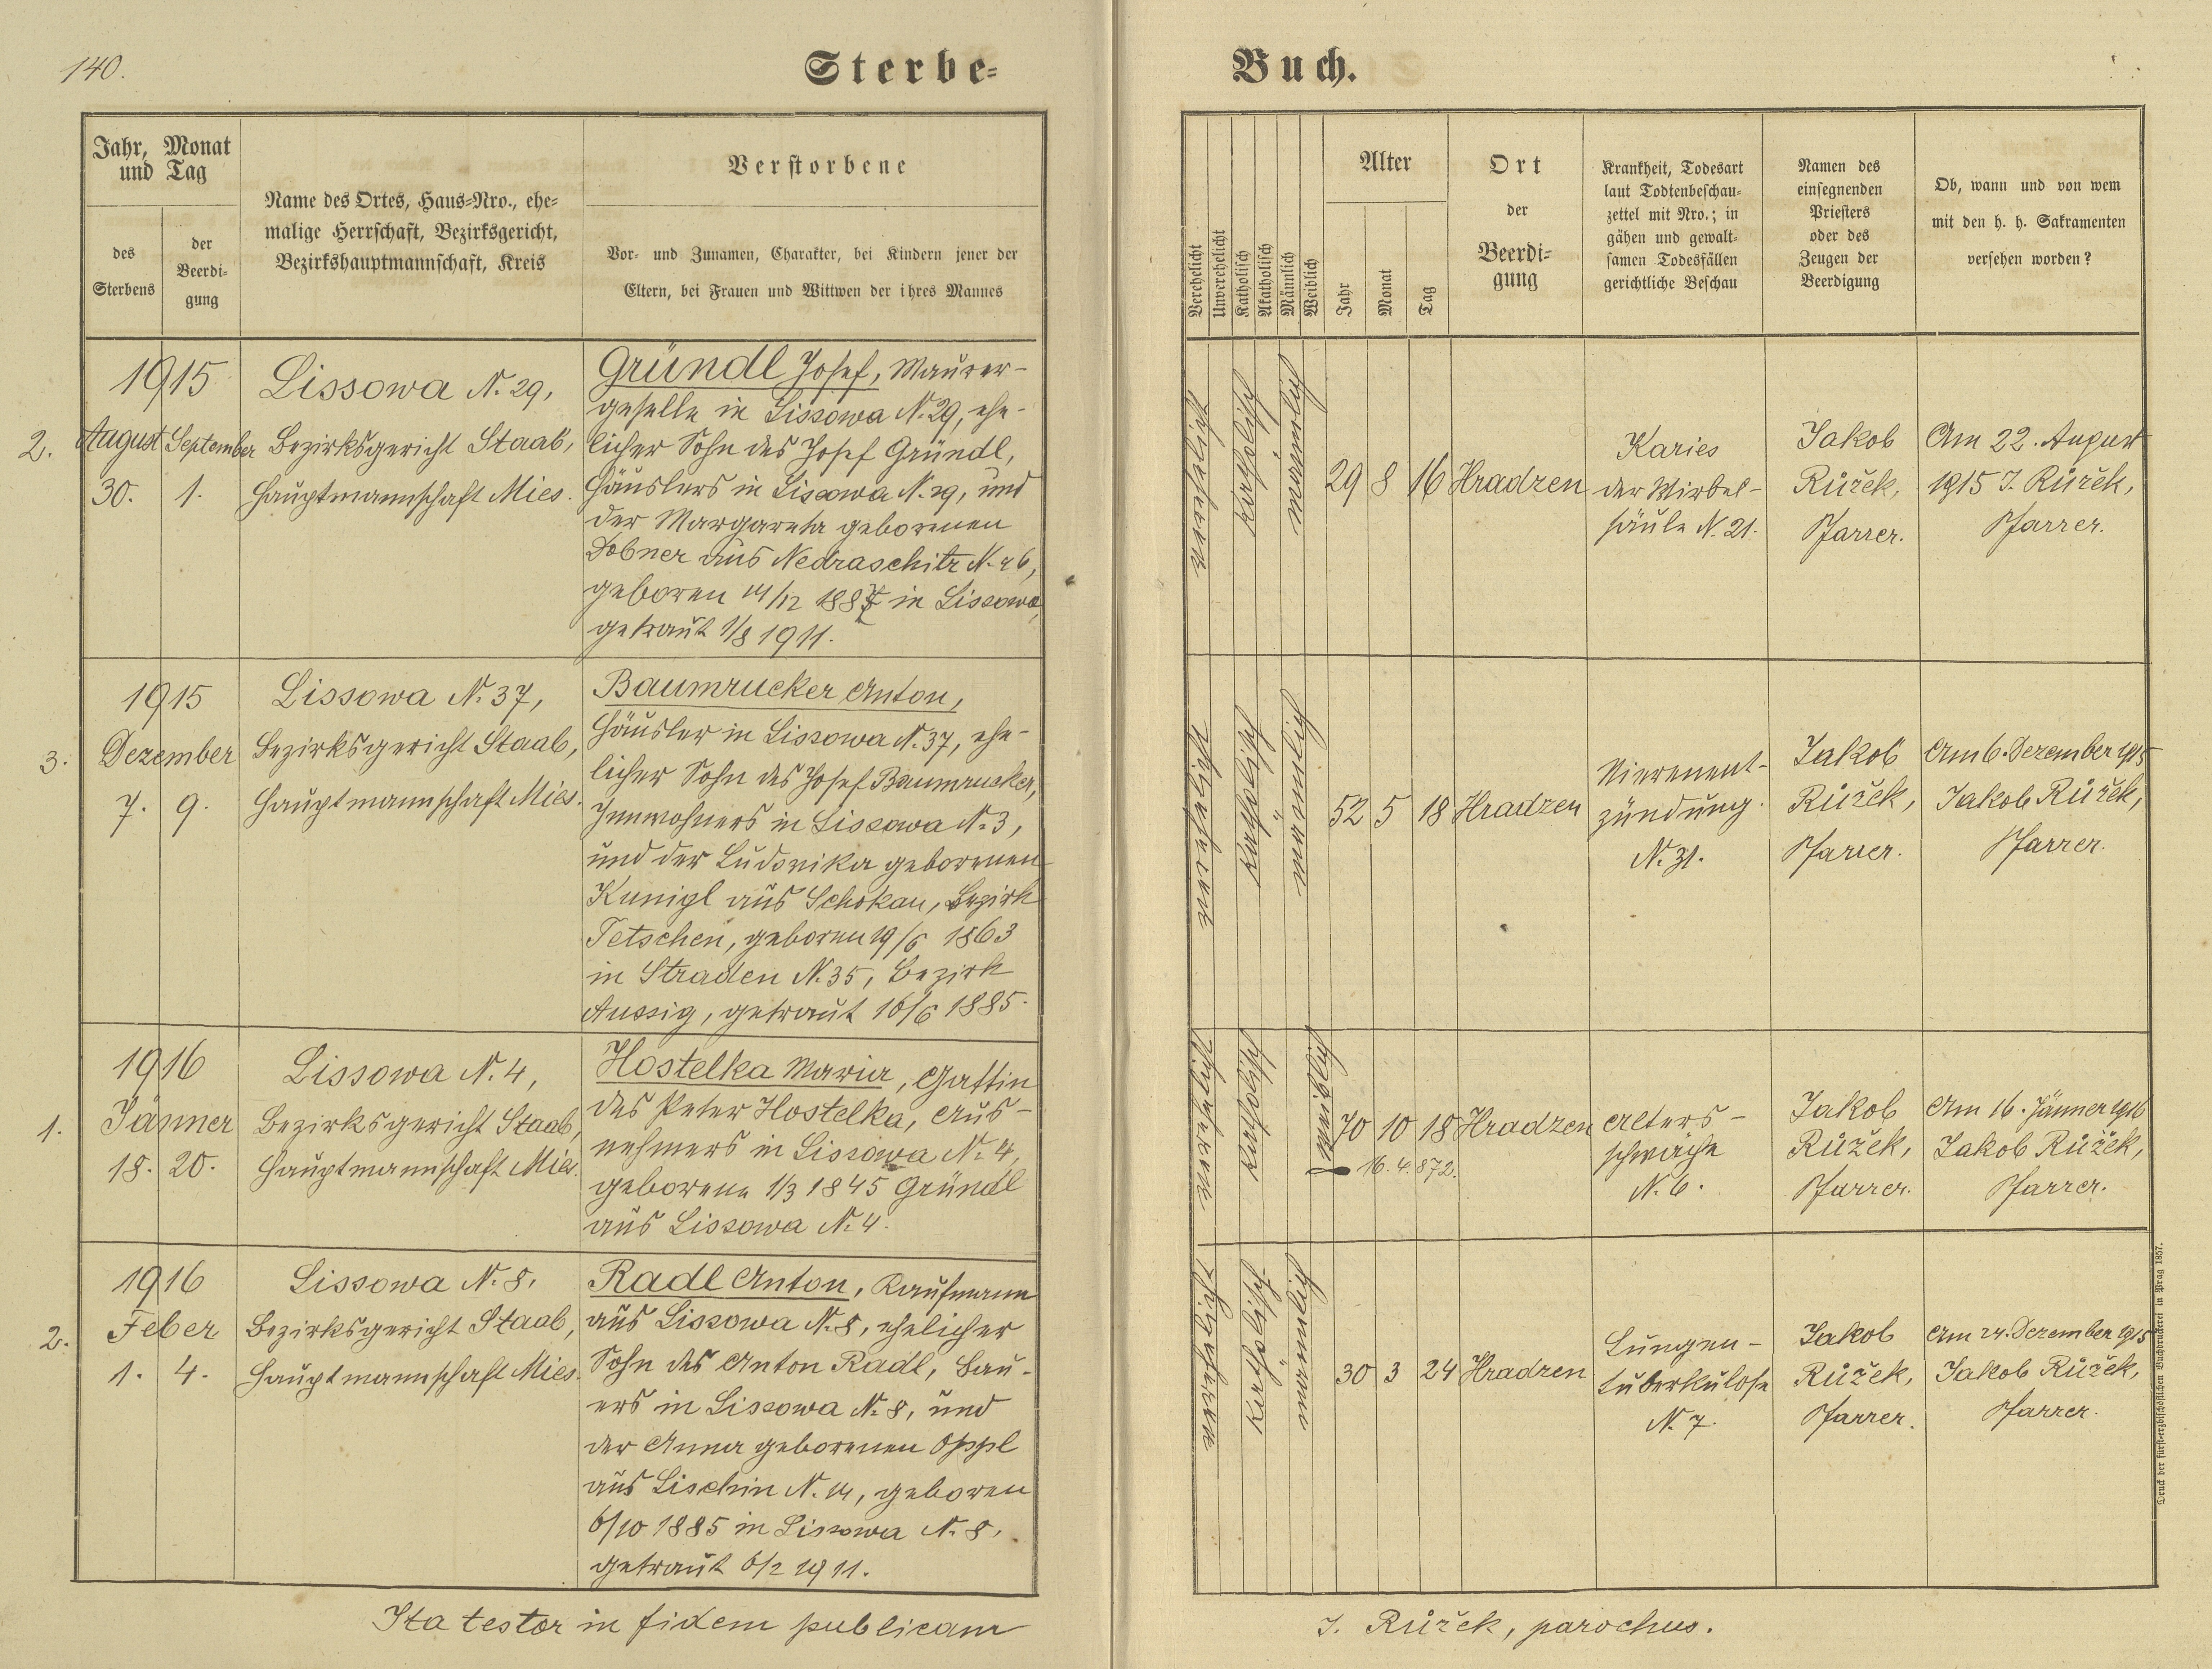 140.
Sterbe-
Buch.
Jahr, Monat
und Tag
des
Sterbens
der
Beerdi-
gung
Name des Ortes, Haus-Nro., ehe-
malige Herrschaft, Bezirksgericht,
Bezirkshauptmannschaft, Kreis
Verstorbene
Vor- und Zunamen, Charakter, bei Kindern jener der
Eltern, bei Frauen und Wittwen der ihres Mannes
Verehelicht
Unverehelicht
Katholisch
Akatholisch
Männlich
Weiblich
Alter
Jahr
Monat
Tag
Ort
der
Beerdi-
gung
Krankheit, Todesart
laut Todtenbeschau-
zettel mit Nro.; in
gähen und gewalt-
samen Todesfällen
gerichtliche Beschau
Namen des
einsegnenden
Priesters
oder des
Zeugen der
Beerdigung
Ob, wann und von wem
mit den h. h. Sakramenten
versehen worden?
2.
1915
August September
30. 1.
Lissowa N. 29,
Bezirksgericht Staab,
Hauptmannschaft Mies.
Gründl Josef, Maurer-
geselle in Lissowa N. 29, ehe-
licher Sohn des Josef Gründl,
Häuslers in Lissowa N. 29, und
der Margareta geborenen
Dobner aus Nedraschitz N. 26,
geboren 14/12 1887 in Lissowa,
getraut 1/8 1911.
verehelicht
katholisch
männlich
29 8 16
Hradzen
Karies
der Wirbel-
säule N. 21.
Jakob
Růžek,
Pfarrer.
Am 22. August
1915 J. Růžek,
Pfarrer.
3.
1915
Dezember
7. 9.
Lissowa N. 37,
Bezirksgericht Staab,
Hauptmannschaft Mies.
Baumrucker Anton,
Häusler in Lissowa N. 37, ehe-
licher Sohn des Josef Baumrucker,
Innwohners in Lissowa N. 3,
und der Ludovika geborenen
Kunigl aus Schokau, Bezirk
Tetschen, geboren 19/6 1863
in Straden N. 35, Bezirk
Aussig, getraut 16/6 1885.
katholisch
männlich
52 5 18
Hradzen
Nierenent-
zündung.
N. 31.
Jakob
Růžek,
Pfarrer.
Am 6. Dezember 1915
Jakob Růžek,
Pfarrer.
1.
1916
Jänner
18. 20.
Lissowa N. 4,
Bezirksgericht Staab,
Hauptmannschaft Mies.
Hostelka Maria, Gattin
des Peter Hostelka, Aus-
nehmers in Lissowa N. 4,
geborene 1/3 1845 Gründl
aus Lissowa N. 4.
katholisch
weiblich
70 10 18
16. 4. 872.
Hradzen
Alters-
schwäche
N. 6.
Jakob
Růžek,
Pfarrer.
Am 16. Jänner 1916
Jakob Růžek,
Pfarrer.
2.
1916
Feber
1. 4.
Lissowa N. 8,
Bezirksgericht Staab,
Hauptmannschaft Mies.
Radl Anton, Kaufmann
aus Lissowa N. 8, ehelicher
Sohn des Anton Radl, Bau-
ers in Lissowa N. 8, und
der Anna geborenen Oppl
aus Lischin N. 14, geboren
6/10 1885 in Lissowa N. 8,
getraut 6/2 1911.
katholisch
männlich
30 3 24
Hradzen
Lungen-
tuberkulose
N. 7.
Jakob
Růžek,
Pfarrer.
Am 24. Dezember 1915
Jakob Růžek,
Pfarrer.
Ita testor in fidem publicam
J. Růžek, parochus.
Druck der fürst-erzbischöflichen Buchdruckerei in Prag 1857.